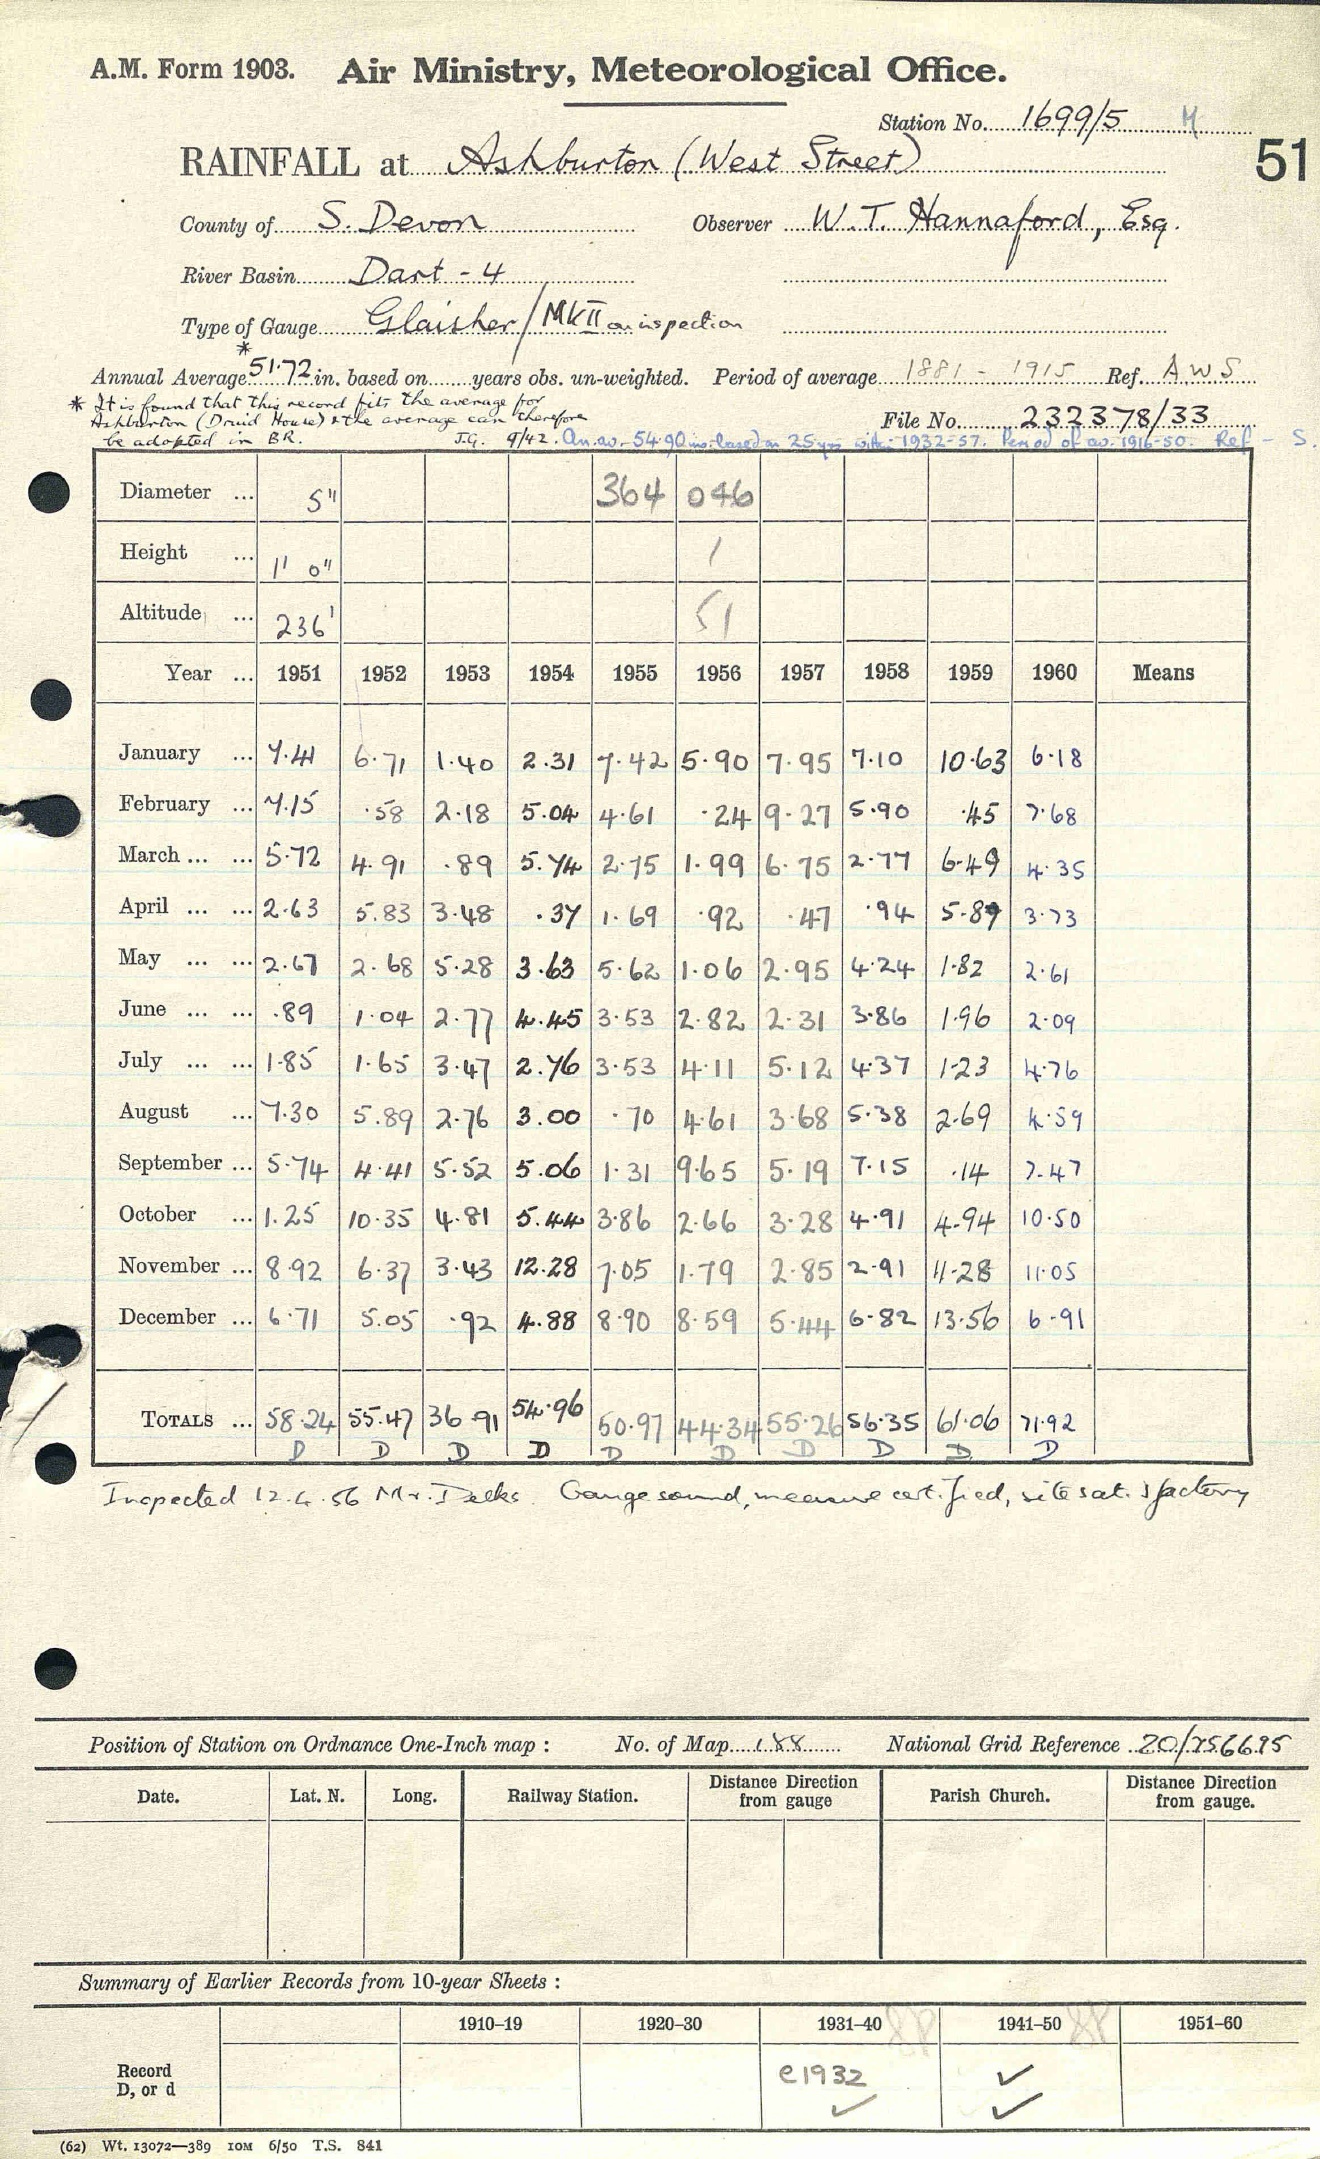 A.M. Form 1903. Air Ministry, Meteorological Office.
Station No. 1699/5 M
51
RAINFALL at Ashburton (West Street)
County of S. Devon Observer W.T. Hannaford, Esq.
River Basin Dart - 4
Type of Gauge Glaisher / Mk II on inspection
Annual Average * 51.72 in. based on years obs. un-weighted. Period of average 1881 - 1915 Ref. A.W.S
* It is found that this record fits the average for
Ashburton (Druid House) & the average can therefore File No. 232378/33
be adopted in BR. J.G. 9/42. An. av. 54.90 ins. based on 25 yrs within 1932-57. Period of av. 1916-50. Ref - S.
Diameter ... 5" 364 046
Height ... 1' 0" 1
Altitude ... 236' 51
Year ... 1951 1952 1953 1954 1955 1956 1957 1958 1959 1960 Means
January ... 7.41 6.71 1.40 2.31 7.42 5.90 7.95 7.10 10.63 6.18
February ... 7.15 .58 2.18 5.04 4.61 .24 9.27 5.90 .45 7.68
March ... ... 5.72 4.91 .89 5.74 2.75 1.99 6.75 2.77 6.49 4.35
April ... ... 2.63 5.83 3.48 .37 1.69 .92 .47 .94 5.87 3.73
May ... ... 2.67 2.68 5.28 3.63 5.62 1.06 2.95 4.24 1.82 2.61
June ... ... .89 1.04 2.77 4.45 3.53 2.82 2.31 3.86 1.96 2.09
July ... ... 1.85 1.65 3.47 2.76 3.53 4.11 5.12 4.37 1.23 4.76
August ... 7.30 5.89 2.76 3.00 .70 4.61 3.68 5.38 2.69 4.59
September ... 5.74 4.41 5.52 5.06 1.31 9.65 5.19 7.15 .14 7.47
October ... 1.25 10.35 4.81 5.44 3.86 2.66 3.28 4.91 4.94 10.50
November ... 8.92 6.37 3.43 12.28 7.05 1.79 2.85 2.91 11.28 11.05
December ... 6.71 5.05 .92 4.88 8.90 8.59 5.44 6.82 13.56 6.91
TOTALS ... 58.24 55.47 36.91 54.96 50.97 44.34 55.26 56.35 61.06 71.92
D D D D D D D D D D
Inspected 12.4.56 Mr. Delks. Gauge sound, measure certified, site satisfactory
Position of Station on Ordnance One-Inch map : No. of Map 188 National Grid Reference 20/756695
Date. Lat. N. Long. Railway Station. Distance Direction from gauge Parish Church. Distance Direction from gauge.
Summary of Earlier Records from 10-year Sheets :
1910-19 1920-30 1931-40 1941-50 1951-60
Record D, or d e1932 ✓ ✓ ✓
(62) Wt. 13072—389 10M 6/50 T.S. 841